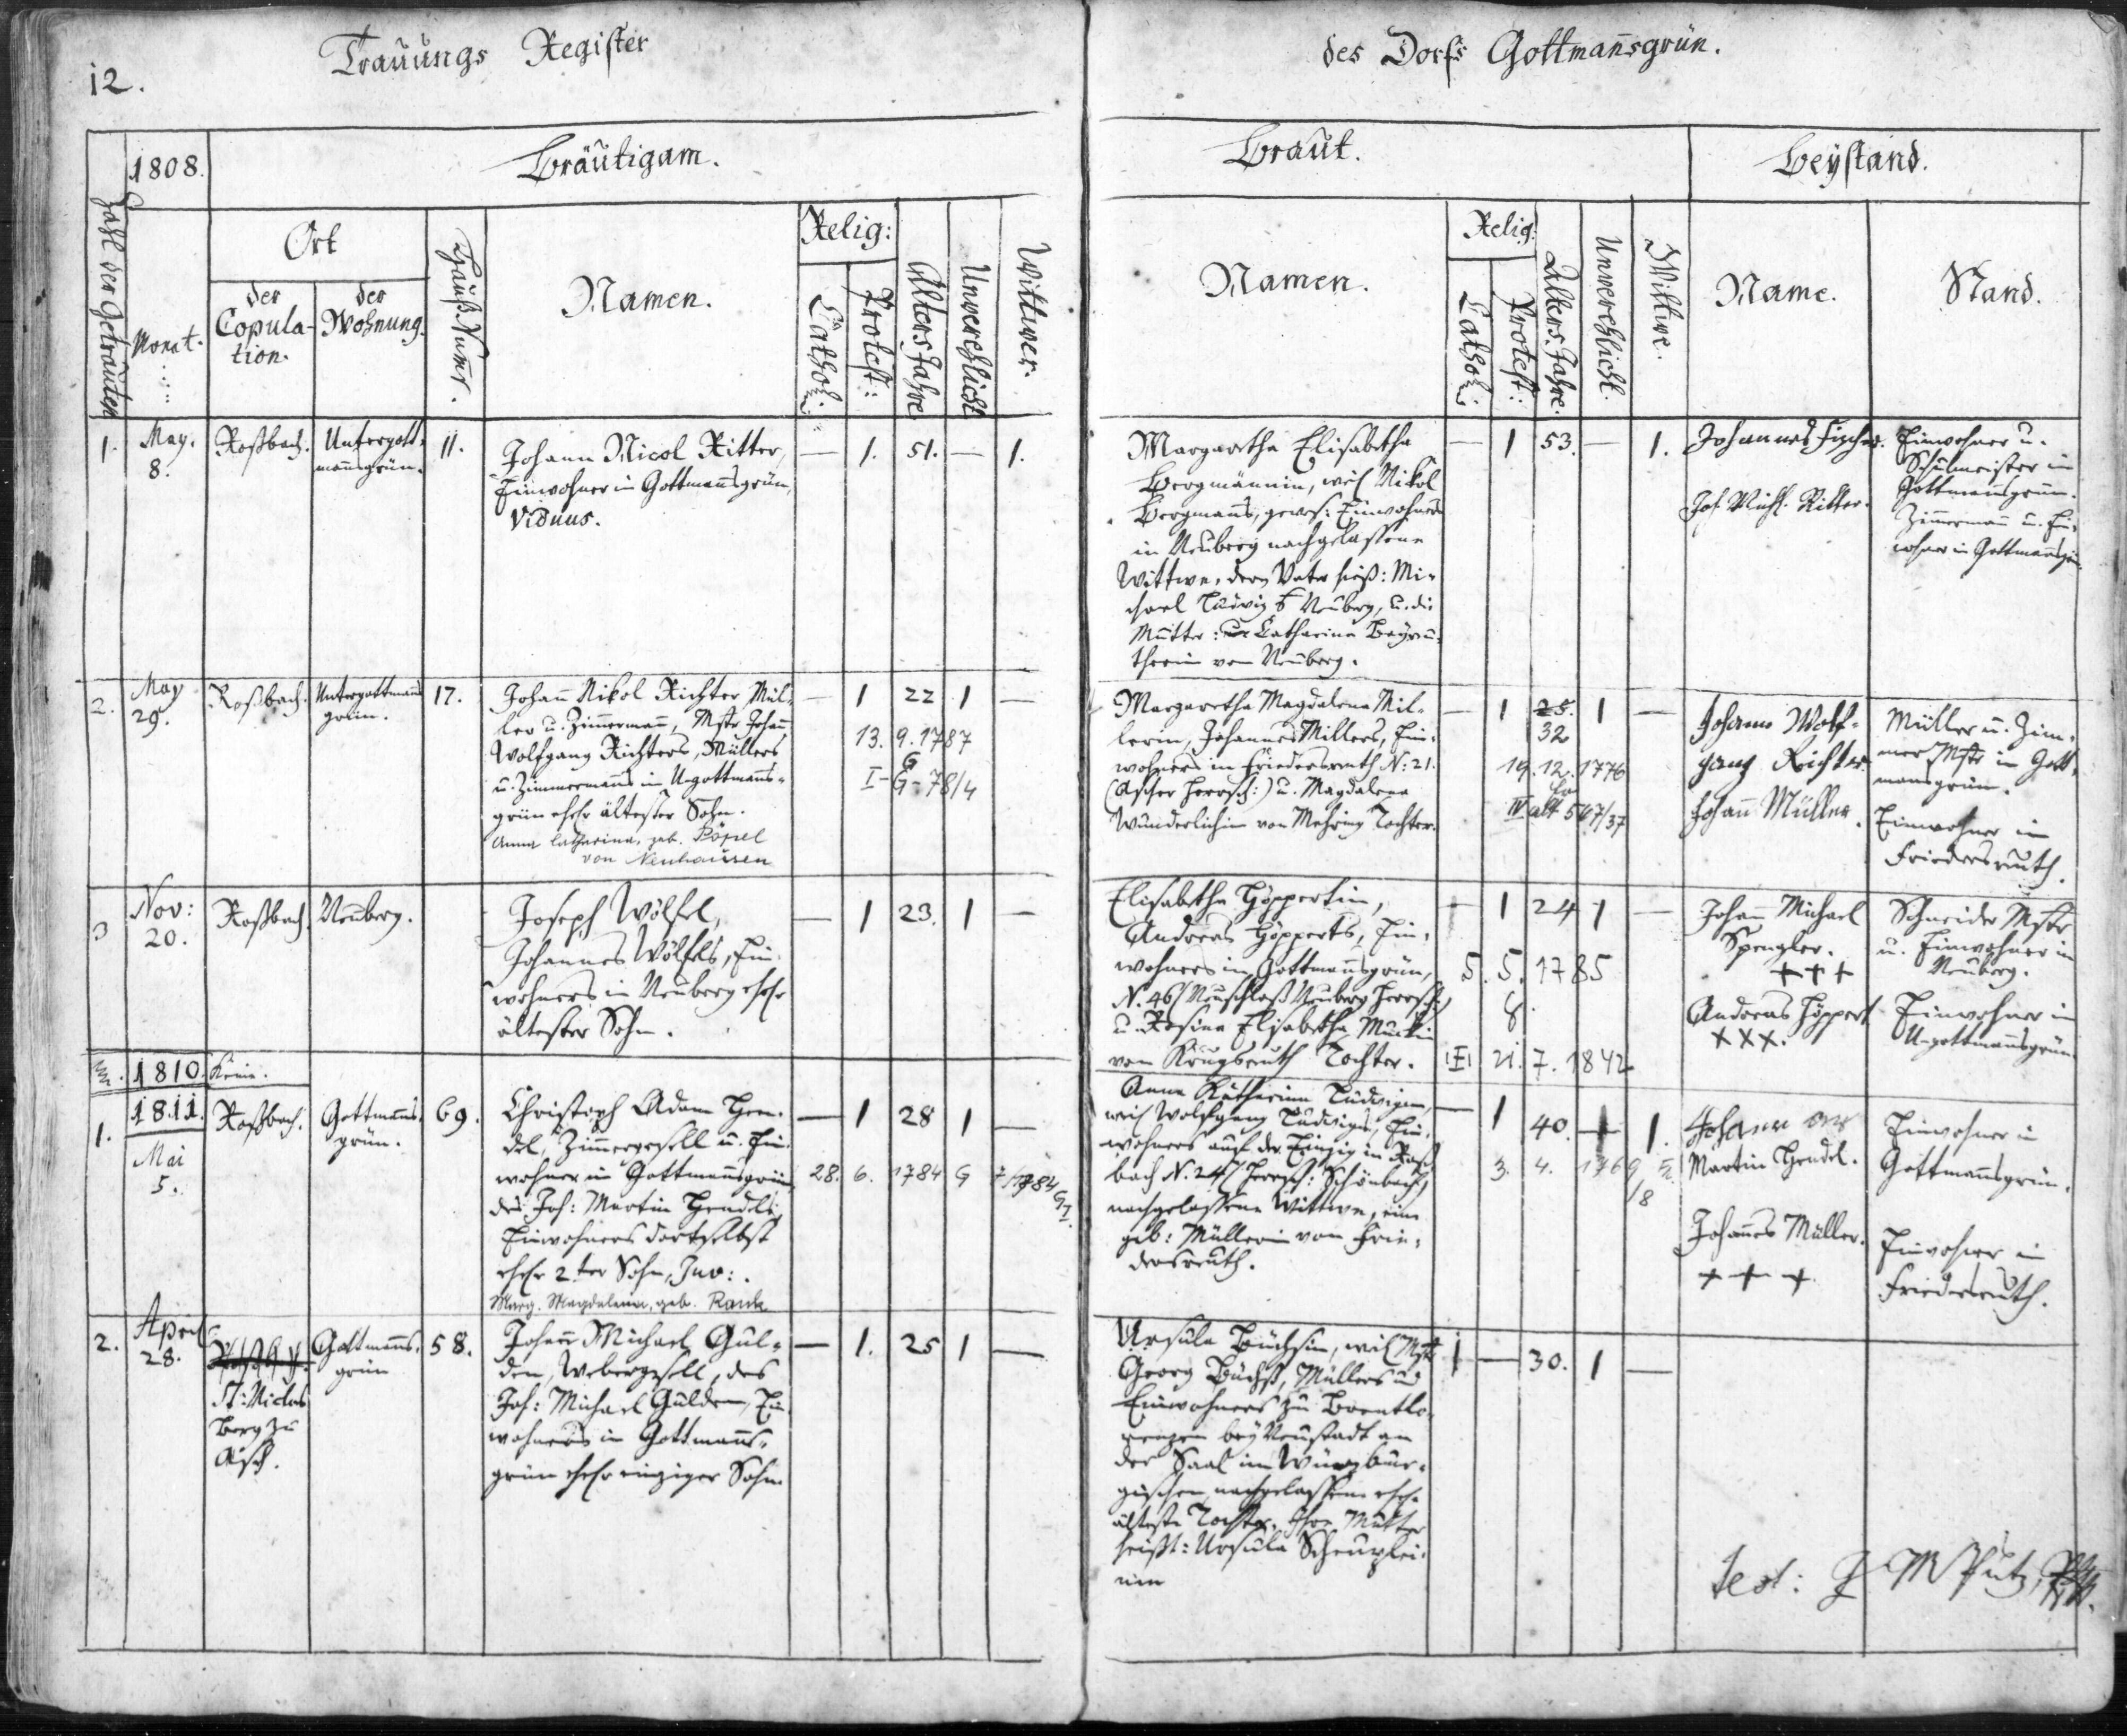 12.
Trauungs Register
des Dorfs Gottmañsgrün.
1808.
Bräutigam.
Braut.
Beystand.
Zahl der Getrauten
Monat.
Ort
der Copula-
tion.
der
Wohnung.
Hauß Numr.
Namen.
Relig:
Cathol:
Protest:
Alters Jahre
Unverehlicht
Wittwer.
Namen.
Relig:
Cathol:
Protest:
Alters Jahre.
Unverehlicht.
Wittwe.
Name.
Stand.
1.
May.
8.
Roßbach.
Untergott-
mañsgrün.
11.
Johann Nicol Ritter,
Einwohner in Gottmañsgrün,
Viduus.
— 1. 51. — 1.
Margaretha Elisabetha
Bergmännin, weil Nikol
Bergmañs, gewes: Einwohners
in Neuberg nachgelassene
Wittwe, deren Vater hieß: Mi-
chael Ludwig Neuberg, u. die
Mutter: Catharina Beyreu-
therin von Neuberg.
— 1 53. — 1.
Johannes Fischer.
Joh. Michl. Ritter.
Einwohner u.
Schulmeister in
Gottmañsgrün.
Zimmermañ u. Ein-
wohner in Gottmañsgrün.
2.
May
29.
Roßbach.
Untergottmañs
grün.
17.
Johañ Nikol Richter Mül-
ler u. Zimmermañ, Mstr Johañ
Wolfgang Richters, Müllers
u. Zimmermañs in U-gottmañs-
grün ehel. ältester Sohn.
Anna Catharina, geb. Pöpel
von Neuhausen
— 1 22 1 —
13. 9. 1787
G
I-G-78/4
Margaretha Magdalena Mil-
lerin, Johannes Millers, Ein-
wohners in Friedersreuth N: 21.
(Ascher Herrsch:) u. Magdalena
Wunderlichin von Mähring Tochter.
— 1 25. 1 —
32
19. 12. 1776
IV alt 567/37
Johann Wolf-
gang Richter.
Johañ Müller.
Müller u. Zim-
mer Mstr in Gott-
mansgrün.
Einwohner in
Friedersreuth.
3
Nov:
20.
Roßbach.
Neuberg.
Joseph Wölfel,
Johannes Wölfels, Ein-
wohners in Neuberg ehel.
ältester Sohn.
— 1 23. 1 —
Elisabetha Höppertin,
Andreas Höpperts, Ein-
wohners in Gottmañsgrün,
N. 46/ Neuschloß Neuberg Herrsch:/
u. Rosina Elisabetha
von Krugsreuth Tochter.
— 1 24 1 —
5. 5. 1785
8
21. 7. 1842
Johañ Michael
Spengler.
+++
Andreas Höppert
XXX.
Schneider Mstr
u. Einwohner in
Neuberg.
Einwohner in
U-gottmañsgrün
1810. Keine.
1.
1811.
Mai
5.
Roßbach.
Gottmañs-
grün.
69.
Christoph Adam Hen-
del, Zimmergesell u. Ein-
wohner in Gottmañsgrün,
des Joh: Martin Hendels,
Einwohners dortselbst
ehel. 2ter Sohn, Juv:.
Marg. Magdalena, geb. Rank
— 1 28 1 —
28. 6. 1784 G
Anna Katharina Ludwigin,
weil Wolfgang Ludwigs, Ein-
wohners auf der Einzig in Roß-
bach N. 24/ Herrsch: Schönbach/
nachgelassene Wittwe, eine
geb: Müllerin von Frie-
dersreuth.
— 1 40. — 1.
3. 4. 1769
/8
Johann
Martin Hendel.
Johañes Müller.
+ + +
Einwohner in
Gottmañsgrün.
Einwohner in
Friedersreuth.
2.
April
28.
Roßbach.
St: Niclas
Berg zu
Asch.
Gottmañs-
grün
58.
Johañ Michael Gul-
den, Webergesell, des
Joh: Michael Gulden, Ein-
wohners in Gottmañs-
grün ehel. einziger Sohn
— 1. 25 1 —
Ursula Büchsin, weil Mstr
Georg Büchs, Müllers und
Einwohners zu Brentlo-
renzen bey Neustadt an
der Saal im Würzbur-
gischen nachgelassene ehel.
älteste Tochter. Ihre Mutter
heißt: Ursula
1 — 30. 1 —
Test: J M Putz,